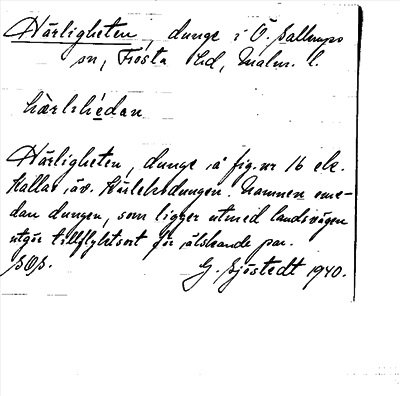 Härligheten, dunge i Ö. Sallerups
sn, Frosta hd, Malm. l.
hàrlihédan
Härligheten, dunge å fig. nr 16 etc.
Kallas äv. Kärleksdungen. Namnen eme-
dan dungen, som ligger utmed landsvägen
utgör tillflyktsort för älskande par.
G. Sjöstedt 1940.